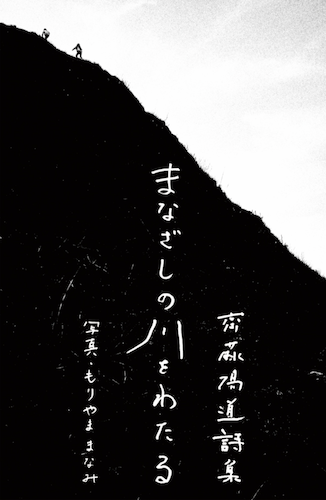 齋藤陽道詩集
まなざしの川をわたる
写真・もりやままなみ